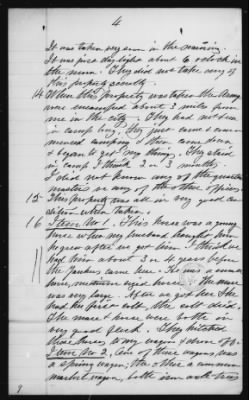 4
It was taken very soon in the morning.
It was just day light about 6 o'clock in
the morn. They did not take any of
this property secretly.
14 When this property was taken the Army
were encamped about 3 miles from
me in the city. They had not been
in camp long, they just came & com-
menced camping & then came down
& began to get my things. They stayed
in camp I think 2 or 3 months.
I did not know any of the quarter
masters or any of the other officers.
15 This property was all in very good con-
dition when taken.
16 Item No 1. This horse was a young
horse when my husband bought him
he grew after we got him. I think we
had him about 3 or 4 years before
the Yankees came here. He was a
horse, medium sized horse. The mare
was very large. After we got her she
had the first colt, the colt died.
The mare & horse were both in
very good flesh. They hitched
those horses to my wagon & drove off.
Item No 2. One of these wagons was
a spring wagon; the other a common
market wagon, both iron axle trees
9